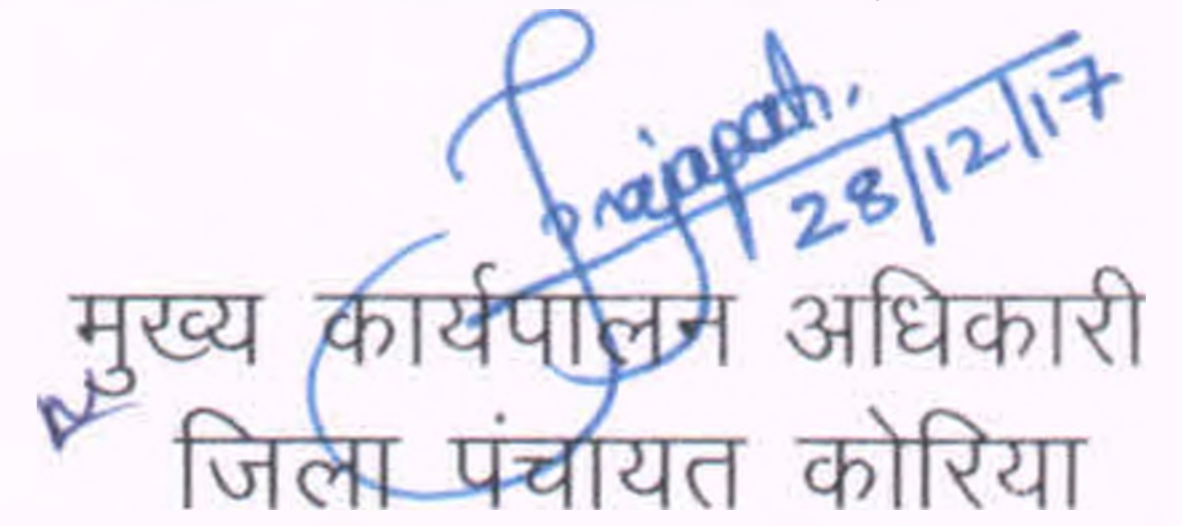 Prajapati.
28/12/17
मुख्य कार्यपालन अधिकारी
जिला पंचायत कोरिया